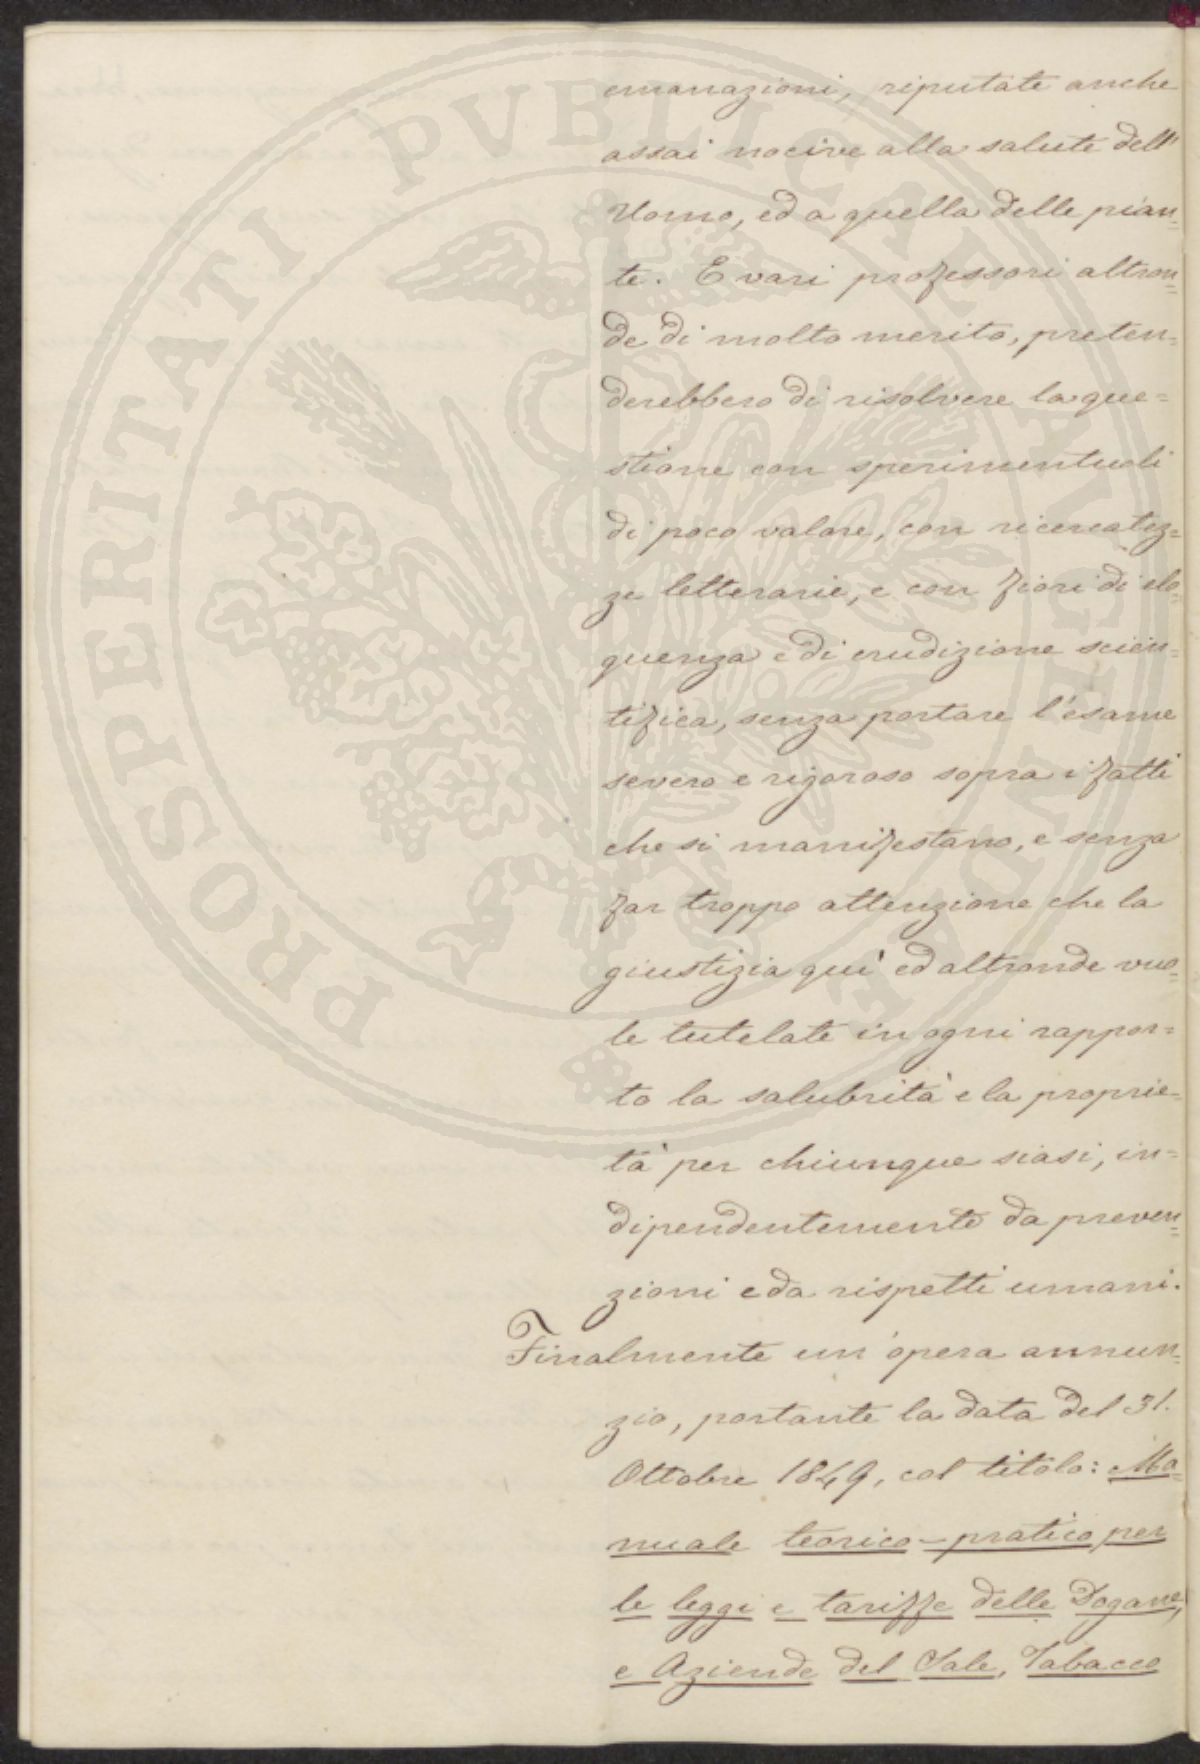 emanazioni, riputate anche
assai nocive alla salute dell'
Uomo, ed a quella delle pian=
te. E vari professori altron=
de di molto merito, preten=
derebbero di risolvere la que=
stione con sperimentuoli
di poco valore, con ricercatez=
ze letterarie, e con fiori di elo=
quenza e di erudizione scien=
tifica, senza portare l'esame
severo e rigoroso sopra i fatti
che si manifestano, e senza
far troppo attenzione che la
giustizia quì ed altronde vuo=
le tutelate in ogni rappor=
to la salubrità e la proprie=
tà per chiunque siasi, in=
dipendentemente da preven=
zioni e da rispetti umani.
Finalmente un'opera annun=
zio, portante la data del 31.
Ottobre 1849, col titolo: Ma=
nuale teorico-pratico per
le leggi e tariffe delle Dogane,
e Aziende del Sale, Tabacco
PROSPERITATI PVBLICAE AVGENDAE